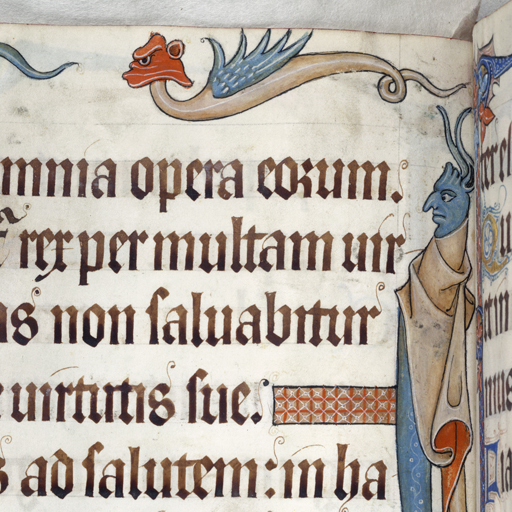 omnia opera eorum.
rex per multam uir
as non saluabitur
e uirtutis sue.
s ad salutem: in ha